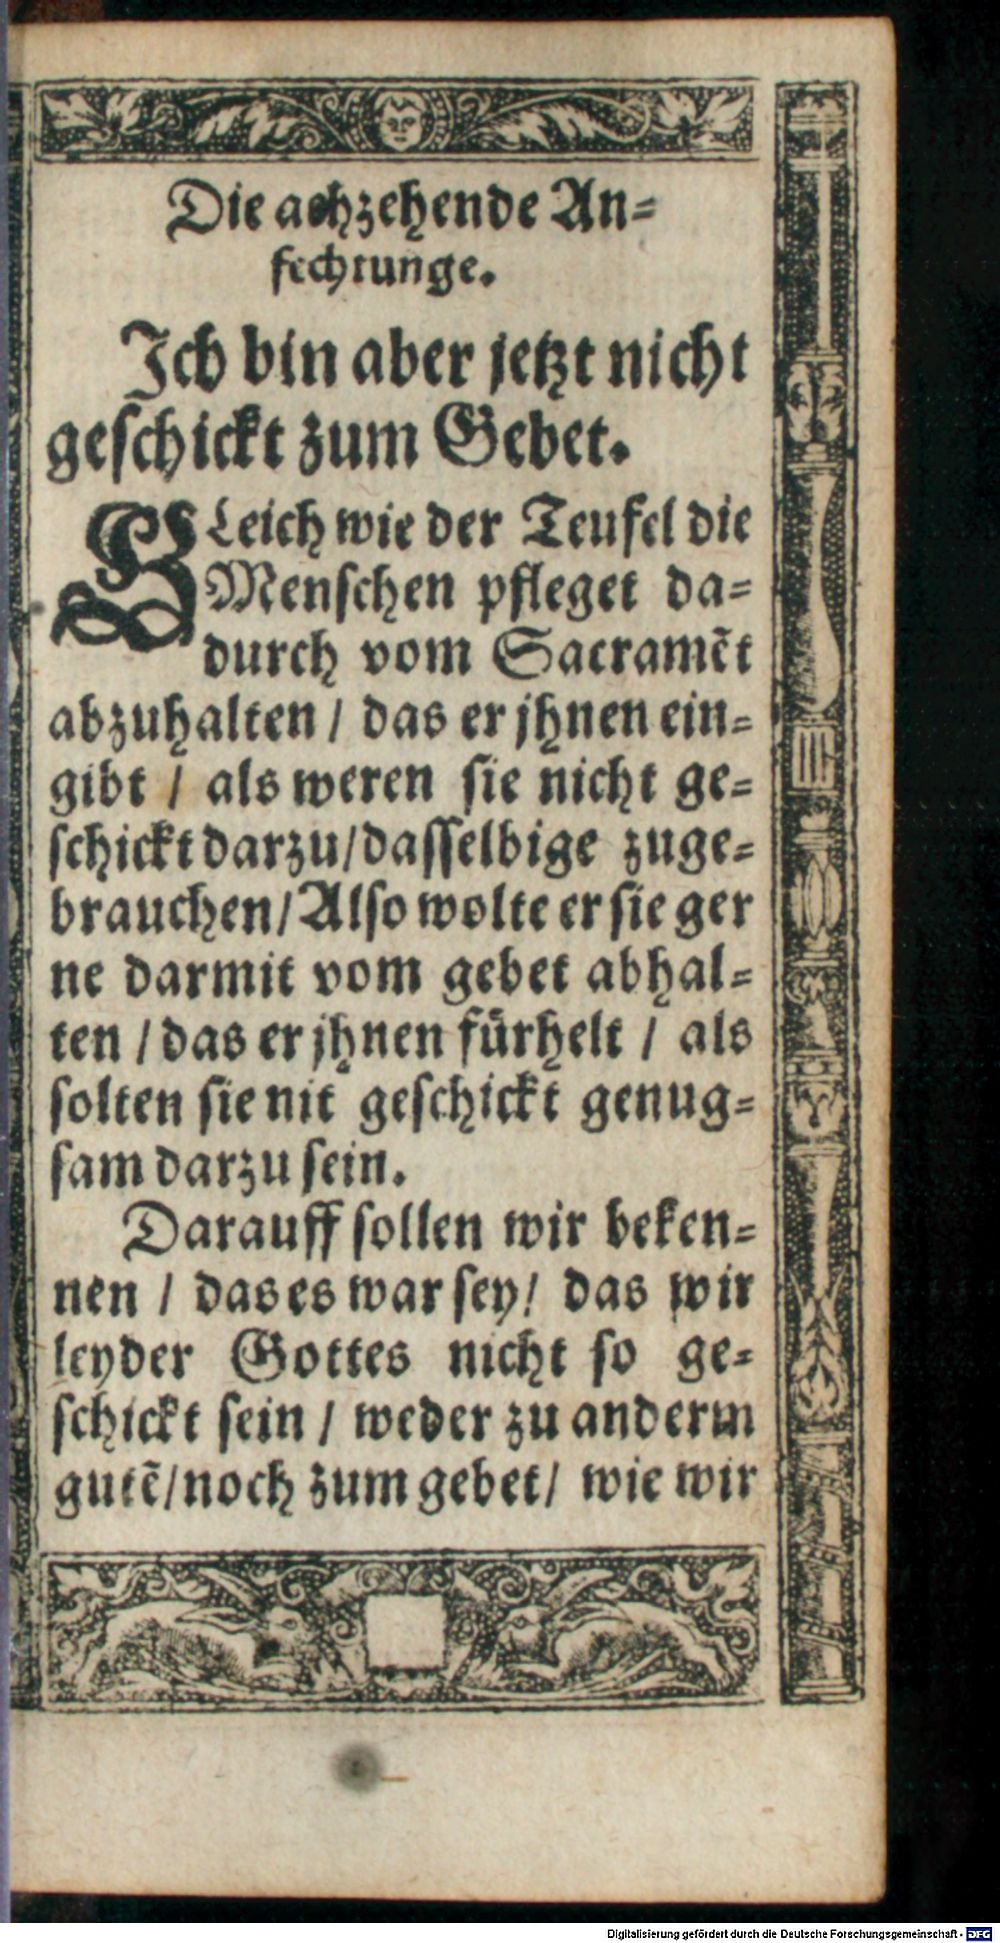 Die achzehende An=
fechtunge.
Ich bin aber jetzt nicht
geschickt zum Gebet.
GLeich wie der Teufel die
Menschen pfleget da=
durch vom Sacramẽt
abzuhalten / das er jhnen ein=
gibt / als weren sie nicht ge=
schickt darzu/dasselbige zuge=
brauchen/Also wolte er sie ger
ne darmit vom gebet abhal=
ten / das er jhnen fürhelt / als
solten sie nit geschickt genug=
sam darzu sein.
Darauff sollen wir beken=
nen / das es war sey/ das wir
leyder Gottes nicht so ge=
schickt sein / weder zu anderm
gutẽ/noch zum gebet/ wie wir
Digitalisierung gefördert durch die Deutsche Forschungsgemeinschaft - DFG